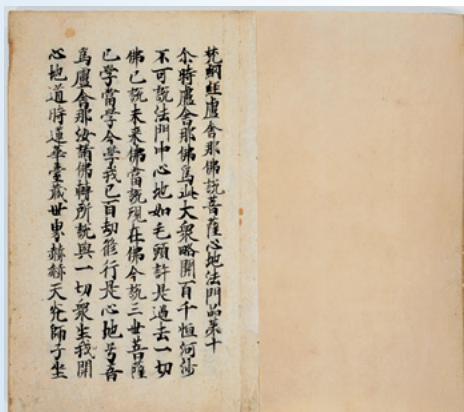 梵網經盧舍那佛說菩薩心地法門品第十
尒時盧舍那佛為此大衆略開百千恒河沙
不可說法門中心地如毛頭許是過去一切
佛已說未来佛當說現在佛今說三世菩薩
已學當學今學我已百劫脩行是心地号吾
為盧舍那汝諸佛轉所說與一切衆生我開
心地道時蓮華臺藏世界赫赫天光師子坐